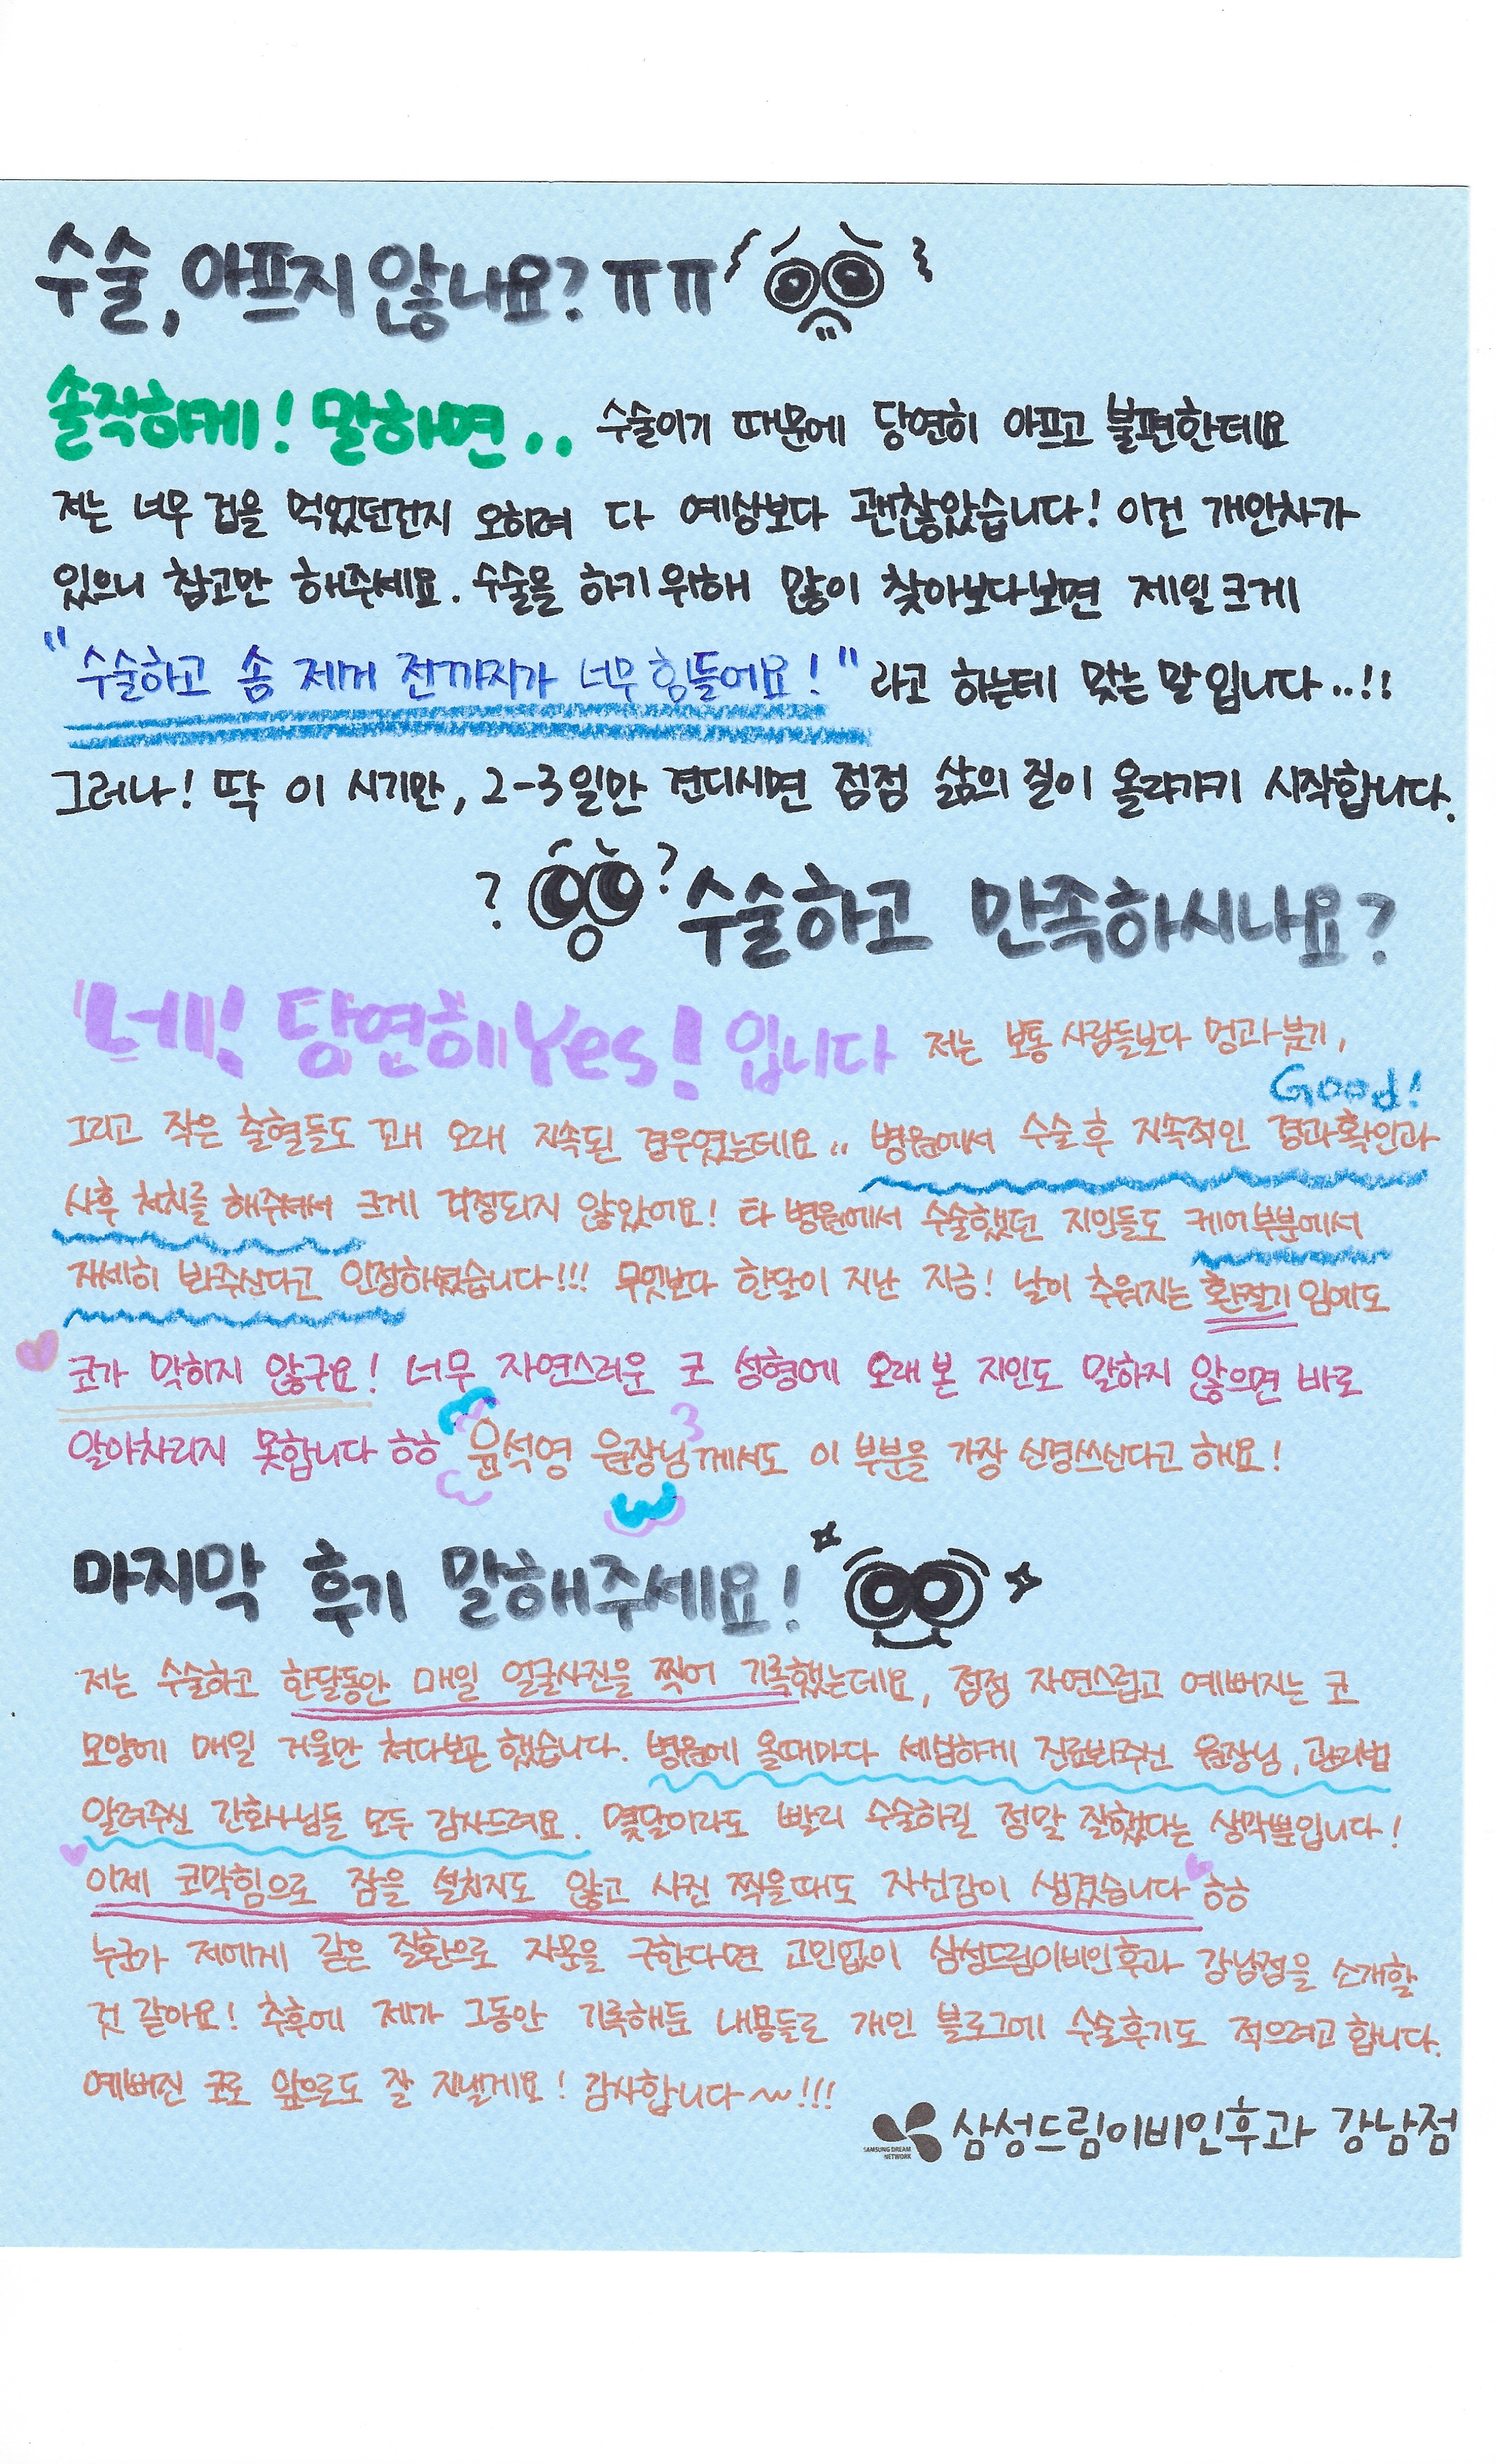 수술, 아프지 않나요? ㅠㅠ
솔직하게! 말하면.. 수술이기 때문에 당연히 아프고 불편한데요
저는 너무 겁을 먹었던건지 오히려 다 예상보다 괜찮았습니다! 이건 개인차가
있으니 참고만 해주세요. 수술을 하기위해 많이 찾아보다보면 제일크게
"수술하고 솜 제거 전까지가 너무 힘들어요!" 라고 하는데 맞는 말입니다..!!
그러나! 딱 이 시기만, 2-3일만 견디시면 점점 삶의 질이 올라가기 시작합니다.
? ? 수술하고 만족하시나요?
네! 당연히 Yes! 입니다 저는 보통 사람들보다 멍과 붓기,
Good!
그리고 작은 출혈들도 꽤 오래 지속된 경우였는데요.. 병원에서 수술 후 지속적인 경과확인과
사후 처치를 해주셔서 크게 걱정되지 않았어요! 타 병원에서 수술했던 지인들도 케어부분에서
자세히 봐주신다고 인정하셨습니다!!! 무엇보다 한달이 지난 지금! 날이 추워지는 환절기임에도
코가 막히지 않구요! 너무 자연스러운 코 성형에 오래 본 지인도 말하지 않으면 바로
알아차리지 못합니다 ㅎㅎ 윤석영 원장님께서도 이 부분을 가장 신경쓰신다고 해요!
마지막 후기 말해주세요!
저는 수술하고 한달동안 매일 얼굴사진을 찍어 기록했는데요, 점점 자연스럽고 예뻐지는 코
모양에 매일 거울만 쳐다보곤 했습니다. 병원에 올때마다 세심하게 진료봐주신 원장님, 관리법
알려주신 간호사님들 모두 감사드려요. 몇달이라도 빨리 수술하길 정말 잘했다는 생각뿐입니다!
이제 코막힘으로 잠을 설치지도 않고 사진 찍을때도 자신감이 생겼습니다 ㅎㅎ
누군가 저에게 같은 질환으로 자문을 구한다면 고민없이 삼성드림이비인후과 강남점을 소개할
것 같아요! 추후에 제가 그동안 기록해둔 내용들로 개인 블로그에 수술후기도 적으려고 합니다.
예뻐진 코로 앞으로도 잘 지낼게요! 감사합니다~!!!
SAMSUNG DREAM NETWORK 삼성드림이비인후과 강남점